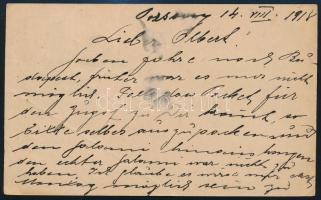 Pozsony 14. VIII. 1918
Lieb Albert!
Soeben fahre nach Bu-
dapest, früher war es mir nicht
möglich. Falls das Packet für
den Zugof zu kommt, so
bitte selbes auszupacken und
den Salami hinaus hängen
den echter Salami war nicht zu
haben. Ich glaube es wird mir
Montag möglich sein zu